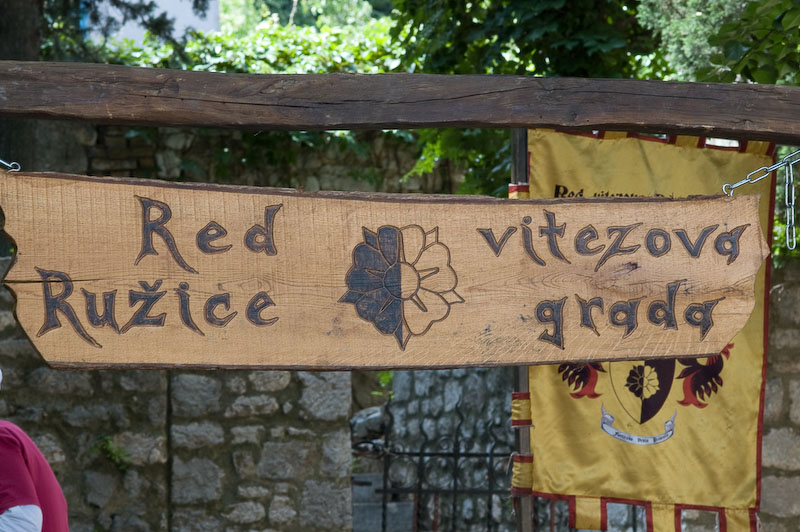 Red vitezova
Ružice grada
Red vitezova